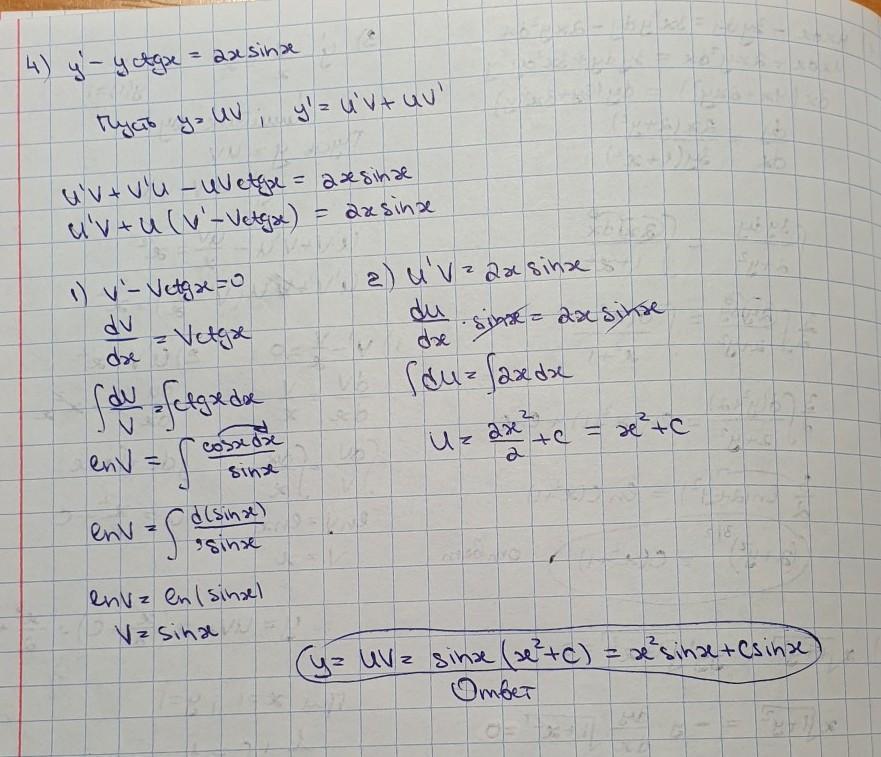 4) y' - y ctgx = 2x sinx
Пусть y = UV, y' = U'V + UV'
U'V + V'U - UV ctgx = 2x sinx
U'V + U (V' - V ctgx) = 2x sinx
1) V' - V ctgx = 0
dV/dx = V ctgx
∫ dV/V = ∫ ctgx dx
lnV = ∫ cosx dx / sinx
lnV = ∫ d(sinx) / sinx
lnV = ln(sinx)
V = sinx
2) U'V = 2x sinx
dU/dx · sinx = 2x sinx
∫ dU = ∫ 2x dx
U = 2x²/2 + C = x² + C
y = UV = sinx (x² + C) = x² sinx + C sinx
Ответ